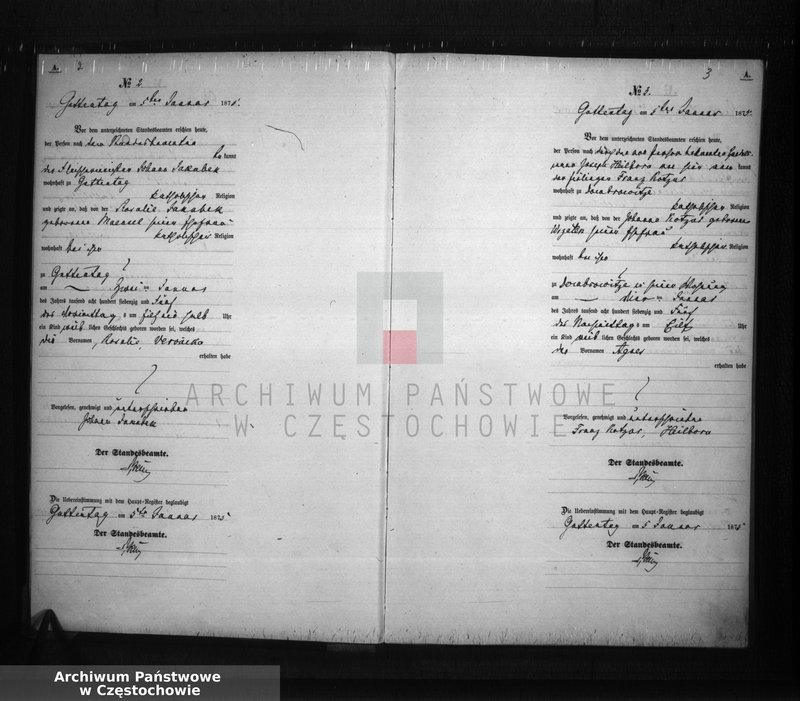 A. 2
№ 2.
Guttentag am 5ten Januar 1875.
Vor dem unterzeichneten Standesbeamten erschien heute,
der Person nach dem Standesbeamten
bekannt
der Fleischermeister Johann Jakubek
wohnhaft zu Guttentag
katholischer Religion
und zeigte an, daß von der Rosalie Jakubek
geborenen seiner Ehefrau
katholischer Religion
wohnhaft bei ihm
zu Guttentag
am zwei ten Januar
des Jahres tausend acht hundert siebenzig und fünf
des Vormittags um halb Uhr
ein Kind weib lichen Geschlechts geboren worden sei, welches
die Vornamen Rosalie Veronika
erhalten habe
Vorgelesen, genehmigt und unterschrieben
Johann Jakubek
Der Standesbeamte.
Die Uebereinstimmung mit dem Haupt-Register beglaubigt
Guttentag am 5ten Januar 1875
Der Standesbeamte.
3 A.
№ 3.
Guttentag am 5ten Januar 1875.
Vor dem unterzeichneten Standesbeamten erschien heute,
der Person nach durch den von Person bekannten
Joseph Heilborn kannt
Franz Kotzur
wohnhaft zu Dombrowitze
katholischer Religion
und zeigte an, daß von der Johanna Kotzur geborenen
seiner Ehefrau
katholischer Religion
wohnhaft bei ihm
zu Dombrowitze in seiner Wohnung
am ten Januar
des Jahres tausend acht hundert siebenzig und fünf
des Nachmittags um Elf Uhr
ein Kind weib lichen Geschlechts geboren worden sei, welches
den Vornamen Agnes
erhalten habe
Vorgelesen, genehmigt und unterschrieben
Franz Kotzur, Heilborn
Der Standesbeamte.
Die Uebereinstimmung mit dem Haupt-Register beglaubigt
Guttentag am 5 Januar 1875
Der Standesbeamte.
ARCHIWUM PAŃSTWOWE
W CZĘSTOCHOWIE
Archiwum Państwowe
w Częstochowie